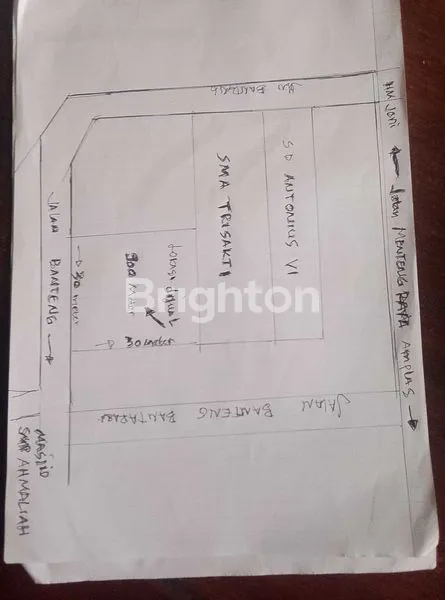 JLN BANTENG
HM Joni ← Jalan MENTENG RAYA Amplas →
SD ANTONIUS VI
SMA TRISAKTI
Lokasi dijual
900 Meter
→ 30 meter
→ 30 meter
JALAN BANTENG →
JALAN BANTENG
MASJID
AMALIAH
Brighton